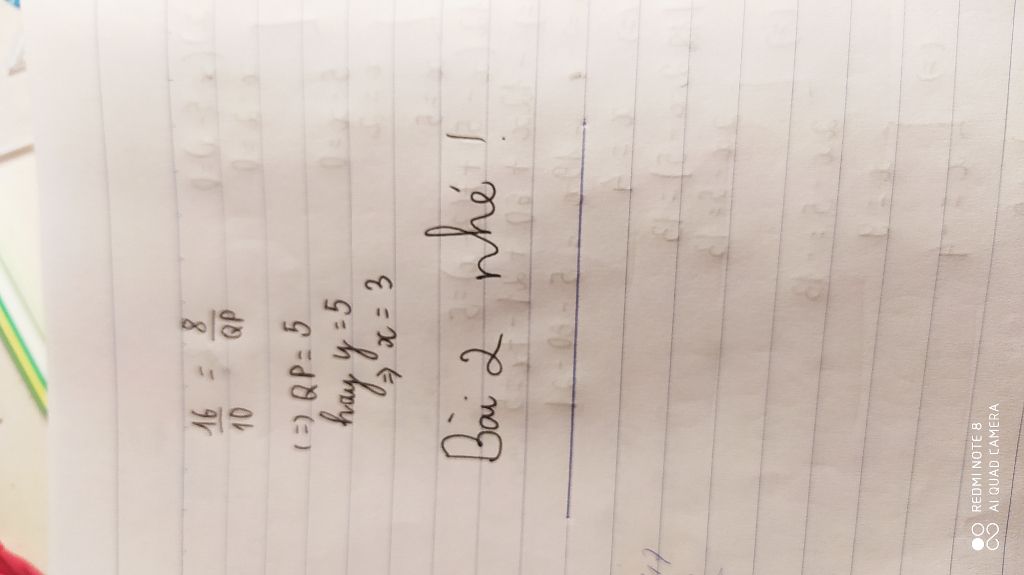 16/10 = 8/QP
(=) QP = 5
hay y = 5
=> x = 3
Bài 2 nhé !
REDMI NOTE 8
AI QUAD CAMERA